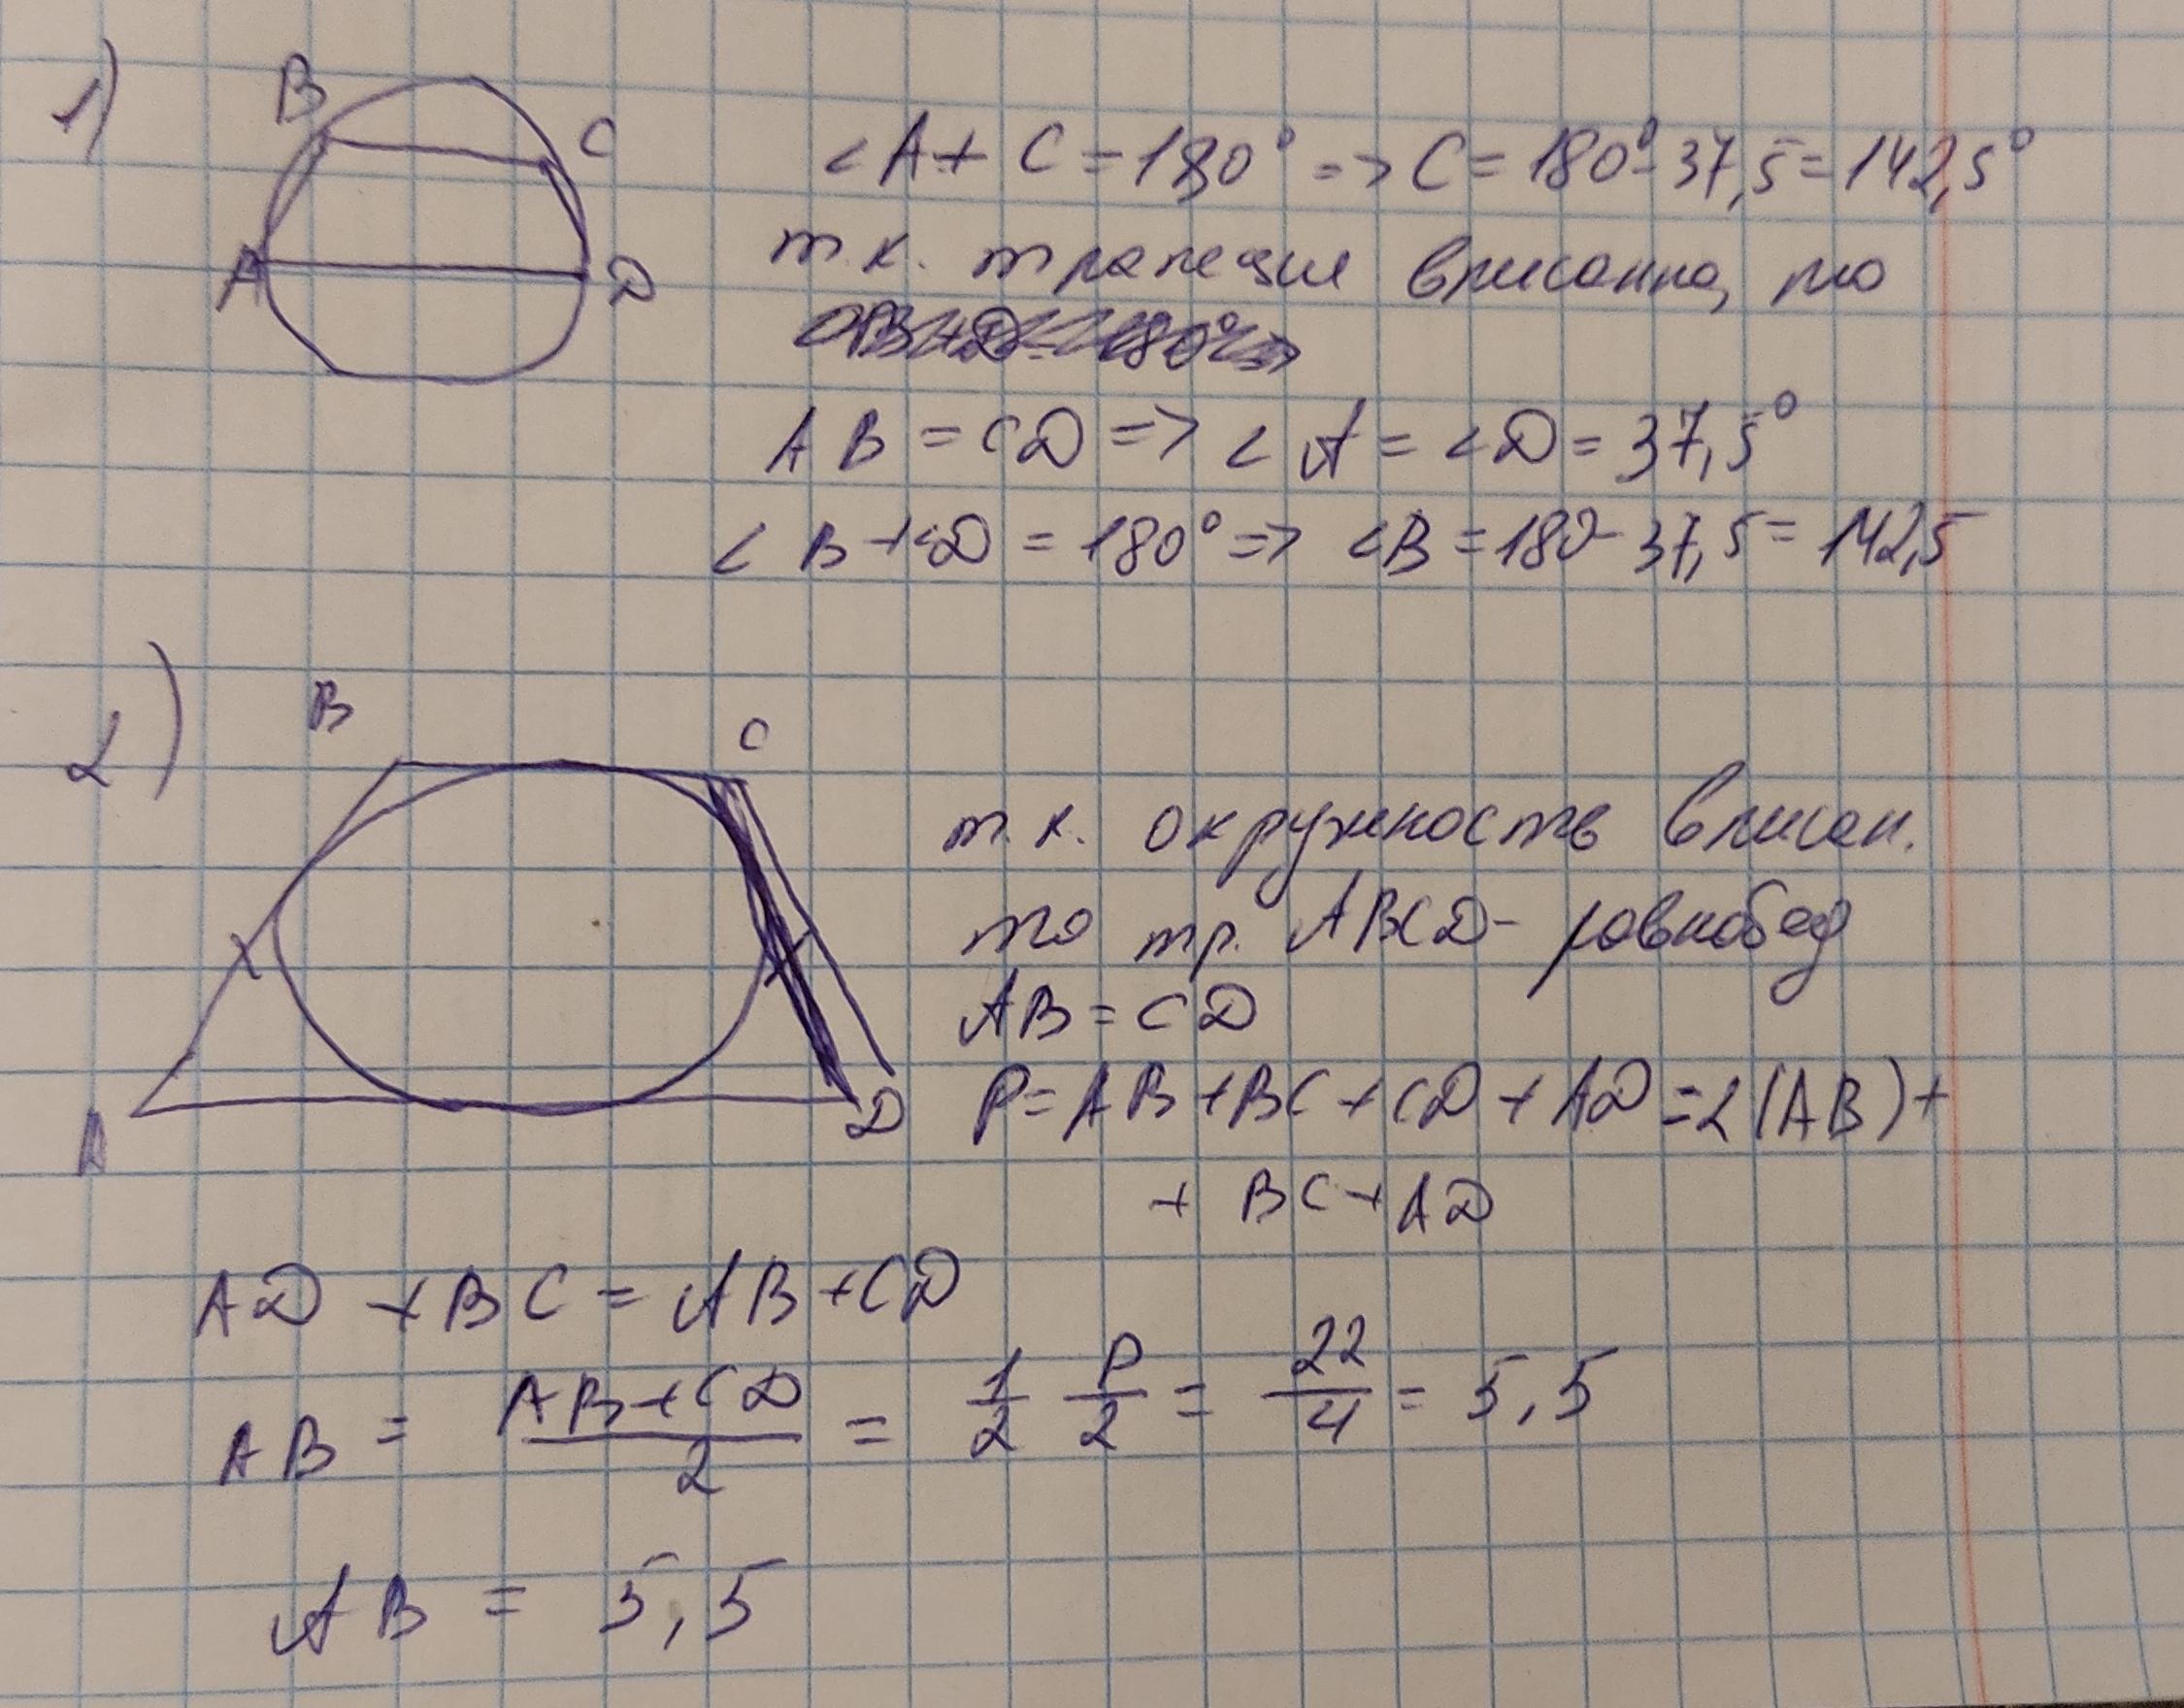 1)
B
C
A
D
<A + C = 180° => C = 180° - 37,5 = 142,5°
т.к. трапеция вписанна, то
AB = CD => < A = <D = 37,5°
< B + <D = 180° => <B = 180 - 37,5 = 142,5
2)
B
C
A
D
т.к. окружность вписан.
то тр. ABCD - равнобед
AB = CD
P = AB + BC + CD + AD = 2(AB) +
+ BC + AD
AD + BC = AB + CD
AB = (AB + CD)/2 = 1/2 P/2 = 22/4 = 5,5
AB = 5,5